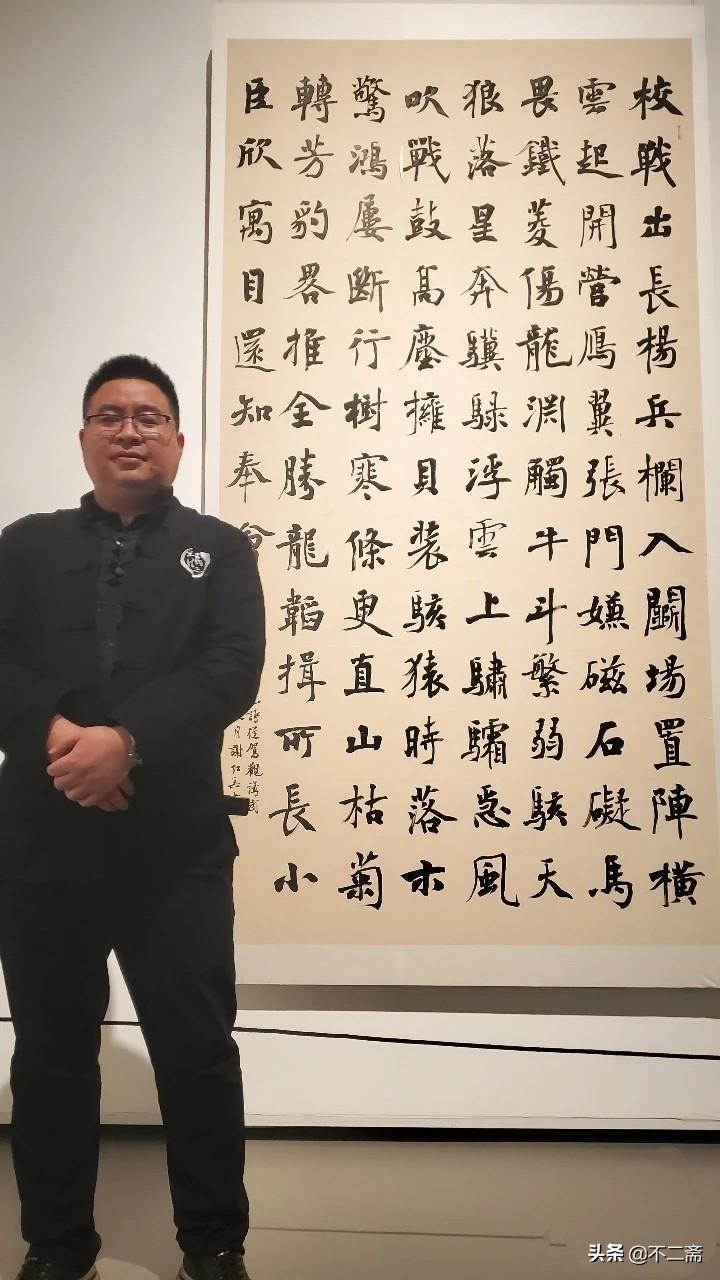 校戦出長楊兵欄入鬭場置陣橫
雲起開營鴈翼張門嫌磁石礙馬
畏鐵菱傷龍淵觸牛斗繁弱駭天
狼落星奔驥騄浮雲上驌驦急風
吹戰鼓高塵擁貝裝駭猿時落木
驚鴻屢斷行樹寒條更直山枯菊
轉芳豹畧推全勝龍韜揖所長小
臣欣寓目還知奉
詩從駕觀講武
月謝紅兵
头条 @不二斋